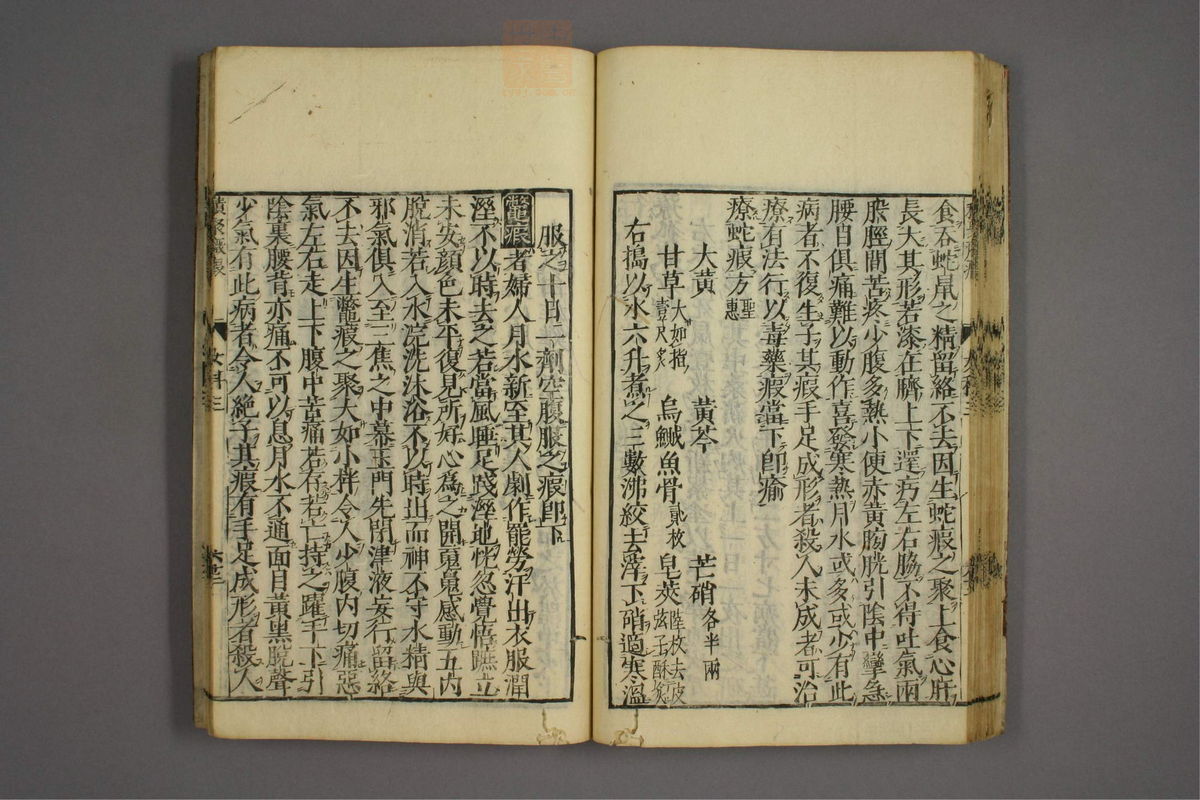 食吞蛇鼠之精留絡不去因生蛇瘕之聚上食心肝
長大其形若漆在臍上下還疞左右脇不得吐氣兩
股脛間苦疼少腹多熱小便赤黃膀胱引陰中攣急
腰目俱痛難以動作喜發寒熱月水或多或少有此
病者不復生子其瘕手足成形者殺人未成者可治
療有法行以毒藥瘕當下即瘉
療蛇瘕方 聖惠
大黃 黃芩 芒硝各半兩
甘草大如指壹尺炙 烏鰂魚骨貳枚 皂莢陸枚去皮弦子酥炙
右搗以水六升煮之三數沸絞去滓下硝適寒溫
服之十日一劑空腹服之瘕即下
鼈瘕者婦人月水新至其人劇作罷勞汗出衣服潤
溼不以時去之若當風睡足踐溼地恍忽覺悟蹠立
未安顏色未平復見所好心為之開蒐蒐感動五內
脫消若入水浣洗沐浴不以時出而神不守水精與
邪氣俱入至三焦之中幕玉門先閉津液妄行留絡
不去因生鼈瘕之聚大如小柈令人少腹內切痛惡
氣左右走上下腹中苦痛若存若亡持之躍手下引
陰裏腰背亦痛不可以息月水不通面目黃黑脫聲
少氣有此病者令人絕子其瘕有手足成形者殺人
女科三